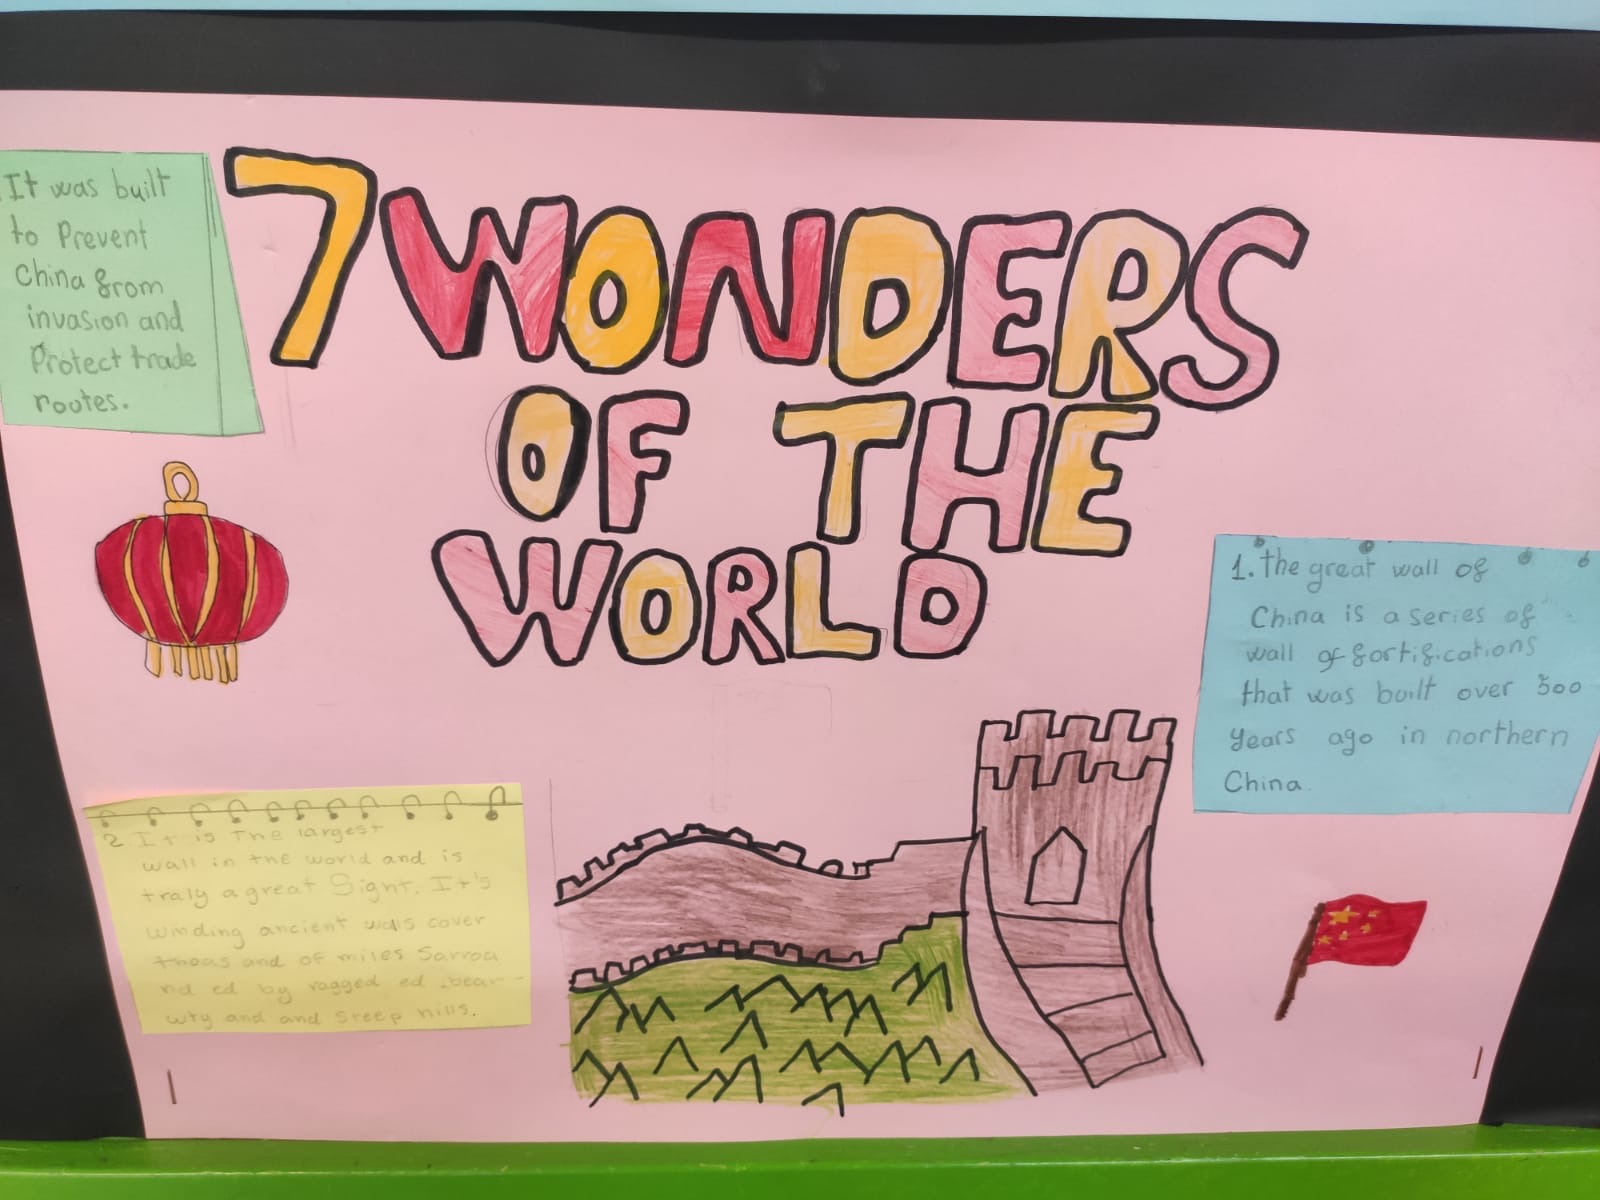 7 WONDERS
OF THE
WORLD
It was built
to Prevent
China from
invasion and
Protect trade
routes.
1. The great wall of
China is a series of
wall of fortifications
that was built over 500
years ago in northern
China.
2. It is The largest
wall in the world and is
traly a great Sight. It's
winding ancient walls cover
thous and of miles Sarrou
nd ed by ragged ed
and and Steep hills.